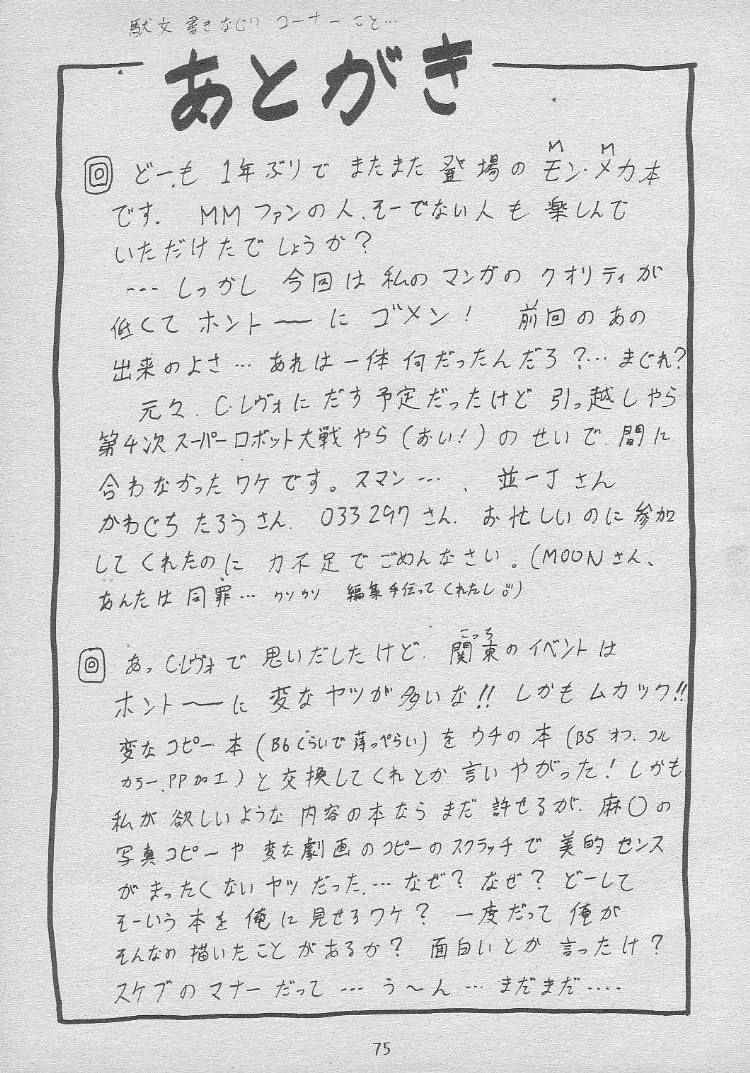 駄文書きなぐりコーナーこと…
あとがき
どーも 1年ぶりで またまた 登場の モン・メカ本
M M
です. MMファンの人、そーでない人も 楽しんで
いただけたでしょうか?
…しっかし 今回は 私の マンガの クオリティが
低くて ホントーーに ゴメン! 前回のあの
出来のよさ… あれは一体 何だったんだろ?… まぐれ?
元々、C・レヴォに だす予定だったけど 引っ越しやら
第4次スーパーロボット大戦やら (おい!)のせいで、間に
合わなかったワケです。スマン…、並一丁さん
かわぐちたろうさん、033297さん、お忙しいのに参加
してくれたのに 力不足でごめんなさい。(MOONさん、
あんたは 同罪… ウソウソ 編集手伝ってくれたし。)
あっ C・レヴォで 思いだしたけど、関東のイベントは
こっち
ホントーーに 変なヤツが多いな!! しかもムカック!!
変なコピー本 (B6くらいで薄っぺらい)を ウチの本 (B5 オフ、フル
カラー、PP加工)と交換してくれとか 言いやがった! しかも
私が 欲しいような 内容の本なら まだ 許せるが、麻〇の
写真コピーや 変な劇画のコピーのスクラッチで 美的センス
がまったくないヤツだった…なぜ?なぜ?どーして
そーいう本を 俺に見せるワケ? 一度だって 俺が
そんなの描いたことがあるか? 面白いとか 言ったけ?
スケブのマナーだって…う～ん…まだまだ….
75